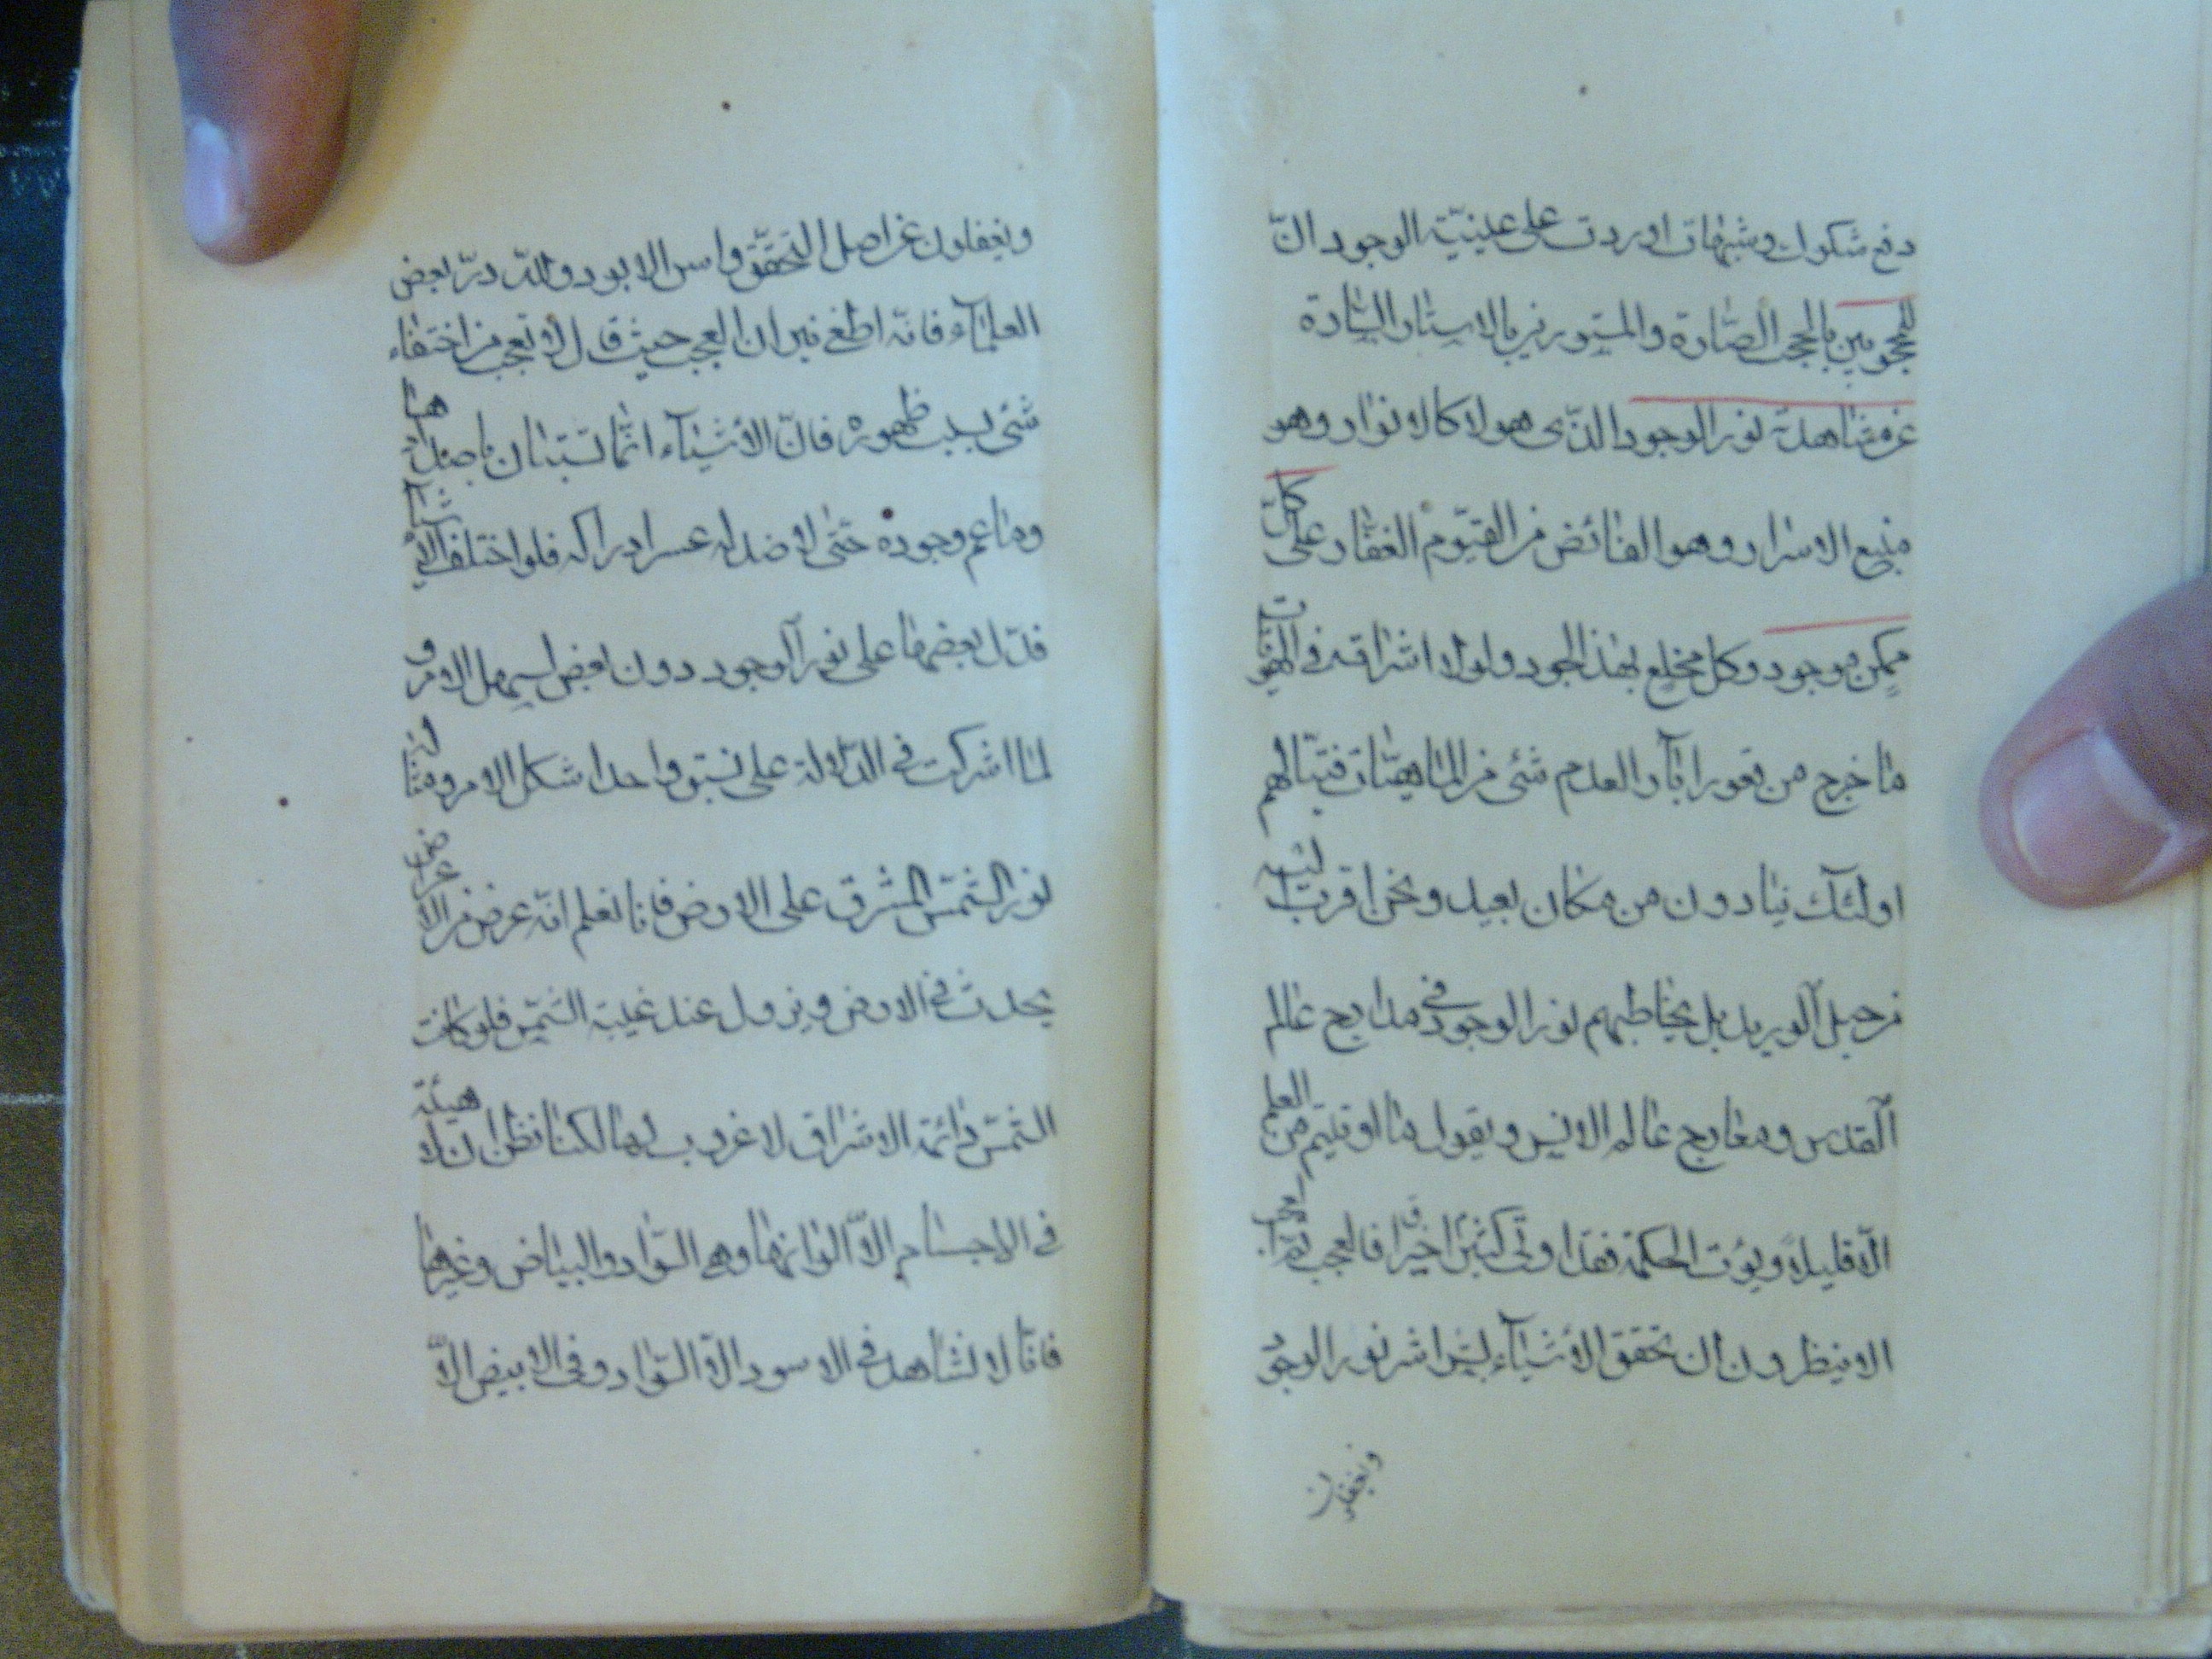 دفع شكوك وشبهات اوردت على عينيّة الوجود انّ
المحجوبين بالحجب الصّارة والمستورين بالاستار السّادة
عن مشاهدة نور الوجود الذّى هو لا كالانوار وهو
منبع الاسرار وهو الفائض من القيّوم الغفّار على كلّ
ممكن موجود وكل مخلع بهذ الجود ولولا اشراقه فى الهويّات
ما خرج من قعور ابآر العدم شئى من الماهيّات فتبّا لهم
اولئك ينادون من مكان بعيد ونحن اقرب اليه
من حبل الوريد بل يخاطبهم نور الوجود فى مدارج عالم
القدس ومعارج عالم الانس ويقول ما اوتيتم من العلم
الّا قليلاً ويؤت الحكمة فقد اوتى خيرًا كثيرًا فالعجب
الا ينظرون ان تحقق الأشيآء ليس اثر نور الوجود
ويغفلون
ويغفلون عن اصل التّحقّق واس الابود ولله درّ بعض
العلمآء فانّه اطفى نيران العجب حيث قال لا تعجب من اختفاء
شئى بسبب ظهوره فانّ الأشيآء انّما تستبان باضدادها
وما عم وجوده حتى لا ضد له عسر ادراكه فلو اختلف الاشيآء
فدّل بعضها على نور الوجود دون بعض لسهل الامر و
لما اشركت فى الدّلالة على نسق واحد اشكل الامر ومثاله
نور الشّمس المشرق على الارض فانا نعلم انّه عرض من الاعراض
يحدث فى الارض ويزول عند غيبة الشّمس فلو كانت
الشّمس دائمة الاشراق لا غروب لها لكنا نظن ان لا هيئة
فى الاجسام الاّ الوانها وهى السّواد والبياض وغيرها
فانّا لا نشاهد فى الاسود الاّ السّواد وفى الابيض الاّ